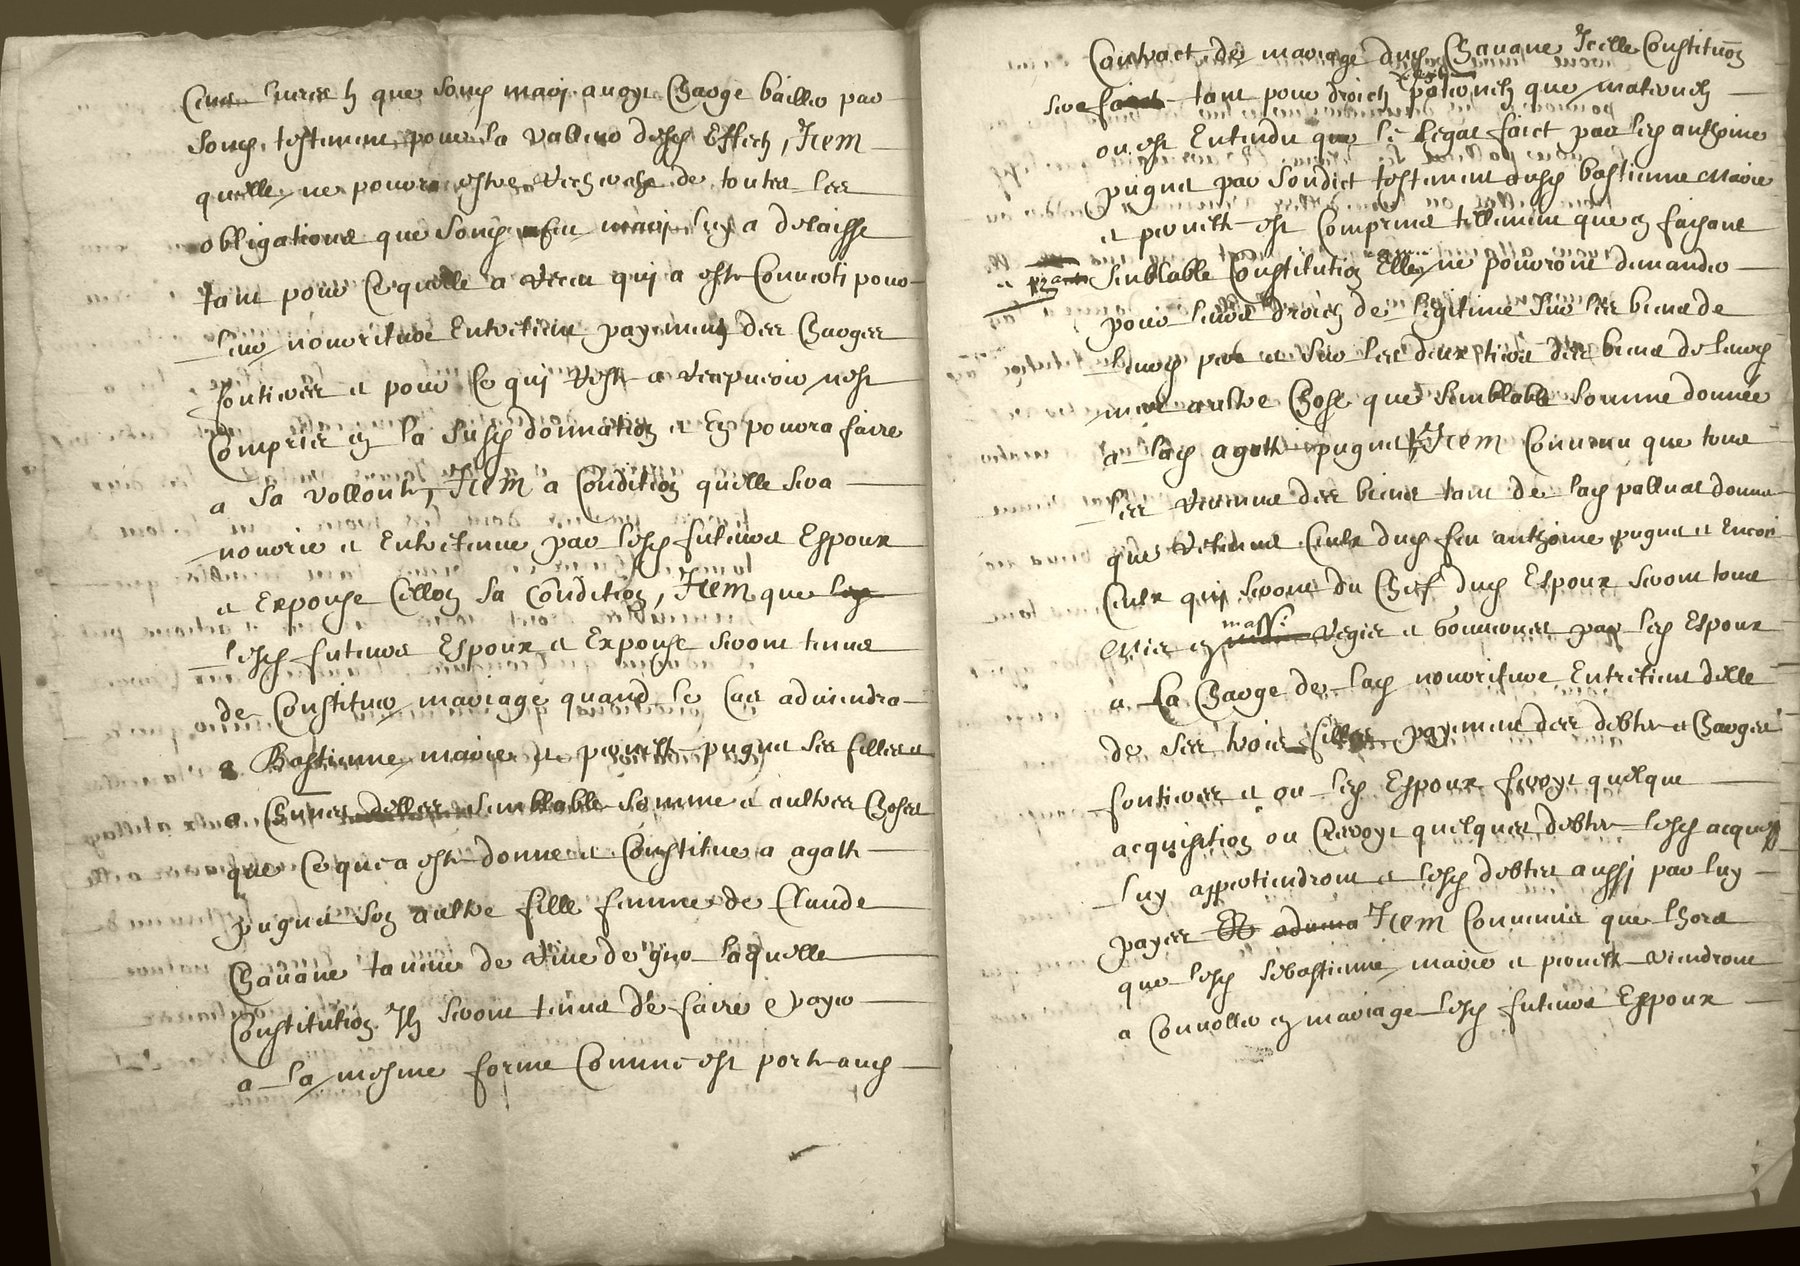 Cens livres ts que sond mary avoyt Charge bailler par
sond testement pour la valleur desd Effects, Item
quelle ne pourra estre recherche de toutes les
obligations que sond feu mary luy a delaisse
tant pour Ce quelle a receu qui a este Converti pour
leur nourriture Entretient payement des Charges
fontieres et pour Ce qui reste a recepvoir nest
Compris en la susd donnation et En pourra faire
a sa vollonte, Item a Condition quelle sera
nourrie et Entretenue par lesd futeurs Espoux
et Expouse Cellon sa Condition, Item que
lesd futeurs Espoux et Expouse seront tenus
de Constituer mariage quand le Cas adviendra
a Bastienne marie et pernette pugnet ses filles et
a Chunes delles semblable somme et aultres Choses
que Ce que a este donne et Constitue a agathe
pugnet son aultre fille femme de Claude
Chavane tanneur de rive de gier laquelle
Constitution Ils seront tenus de faire et payer
a la mesme forme Comme est porte aud
Contract de mariage dud Chavane Icelle Constitution
sera tant pour droicts paternels que maternels
ou est Entendu que le legat faict par led anthoine
pugnet par sondict testement ausd bastienne Marie
et pernette est Comprins tellement que en faisant
semblable Constitution Elles ne pourront demander
pour leurs droicts de legitime sur les biens de
leurd pere et sur les deux tiers des biens de leurd
mere aultre Chose que semblable somme donnée
a lad agathe pugnet Item Convenu que tous
les revenus des biens tant de lad palluat donnes
que retenus Ceulx dud feu anthoine pugnet et Encore
Ceulx qui seront du Chef dud Espoux seront tous
mis en masse regies et Gouvernes par led Espoux
a La Charge de lad nourriture Entretient delle
de ses trois filles payement des debtes et Charges
fontieres et ou led Espoux feroyt quelque
acquisition ou Creroyt quelques debtes lesd acquests
luy appertiendront et lesd debtes aussy par luy
payes Item Convenus que lhors
que lesd sebastienne marie et pernette viendront
a Convoller en mariage lesd futeurs Espoux